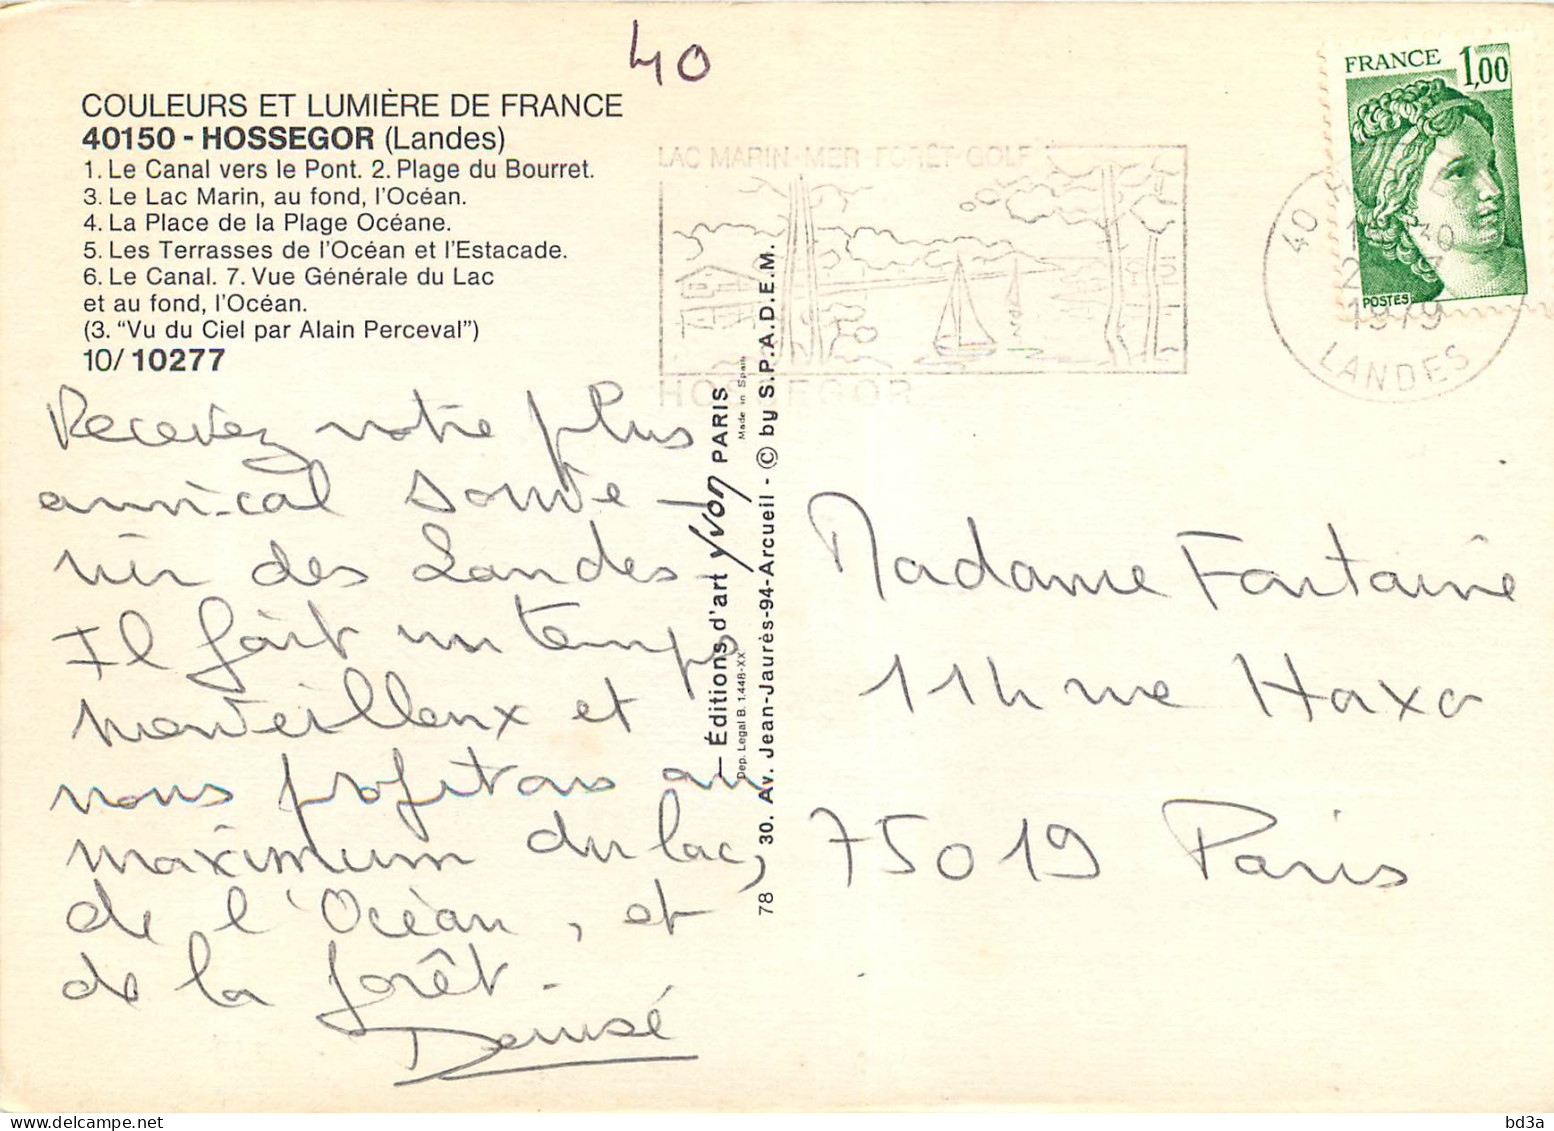 40
COULEURS ET LUMIÈRE DE FRANCE
40150 - HOSSEGOR (Landes)
1. Le Canal vers le Pont. 2. Plage du Bourret.
3. Le Lac Marin, au fond, l'Océan.
4. La Place de la Plage Océane.
5. Les Terrasses de l'Océan et l'Estacade.
6. Le Canal. 7. Vue Générale du Lac
et au fond, l'Océan.
(3. “Vu du Ciel par Alain Perceval”)
10/ 10277
Recevez notre plus
amical souve-
nir des Landes
Il fait un temps
merveilleux et
nous profitons au
maximum du lac,
de l'Océan, et
de la forêt.
Denise
— Éditions d'art Yvon PARIS
Dep. Legal B. 1.448-XX
Made in Spain
78 30. Av. Jean-Jaurès-94-Arcueil - © by S.P.A.D.E.M.
LAC MARIN-MER-FORÊT-GOLF
HOSSEGOR
40
1979
LANDES
FRANCE 1,00
POSTES
Madame Fontaine
114 rue Haxo
75019 Paris
bd3a